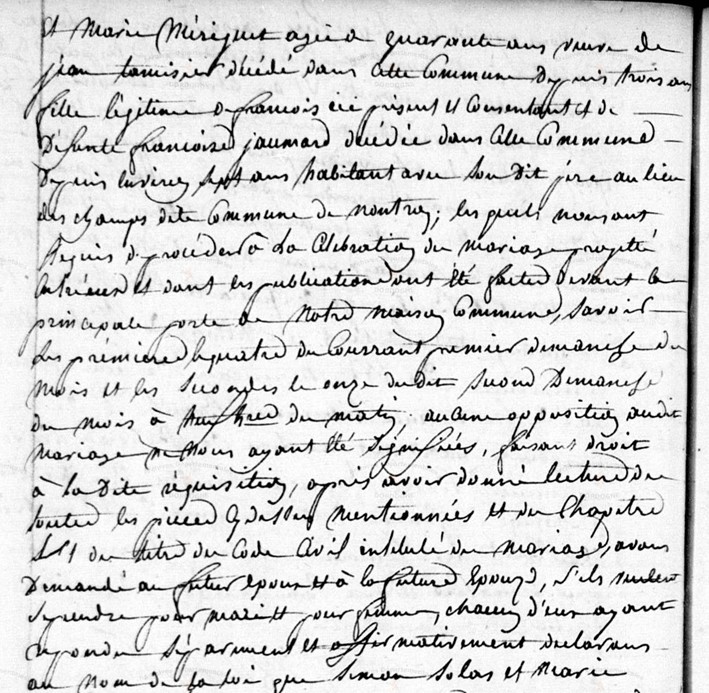 Et Marie Mériguet agée de quarante ans veuve de
jean tamisier décédé dans cette Commune Depuis trois ans
fille légitime de francois ici présent et Consentant et de
Défunte francoise jaumard décédée dans cette Commune
Depuis environ sept ans habitant avec son Dit père au lieu
des champs dite Commune de nontron; lesquels nous ont
Requis de procéder à La Célébration du mariage projetté
entre eux et dont les publications ont été faites devant la
principale porte de notre maison Commune, savoir
Les premières le quatre du Courrant premier dimanche du
mois et les secondes le onze du dit second Dimanche
du mois à heures du matin, aucune opposition audit
mariage ne nous ayant été signifiées, faisant droit
à la Dite réquisition, après avoir donné lecture de
toutes les pièces Cy dessus mentionnées et du Chapitre
du titre du Code Civil intitulé du mariage, avons
Demandé au futur époux et à la future Epouse, s'ils veulent
se prendre pour mari et pour femme, chacun d'eux ayant
repondu séparément et affirmativement declarons
au nom de la loi que simon solas et Marie